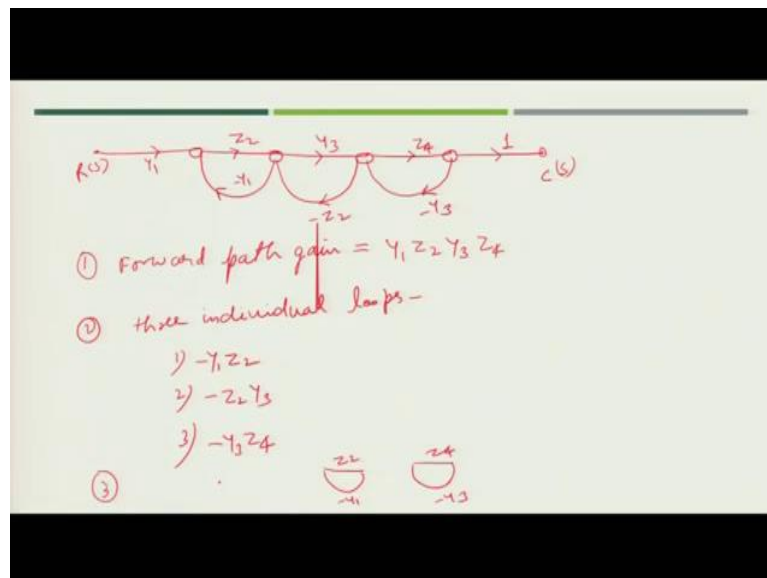 Z2 Y3 Z4 1
R(S) Y1 -Y1 C(S)
-Z2 -Y3
① Forward path gain = Y1 Z2 Y3 Z4
② three individual loops -
1) -Y1Z2
2) -Z2Y3
3) -Y3Z4
③ Z2 Z4
-Y1 -Y3